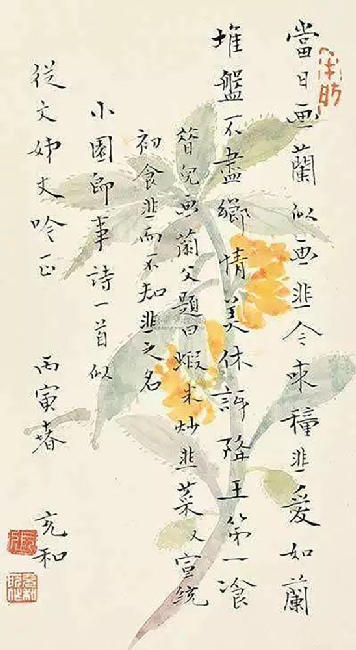 當日画蘭似画韭今來種韭愛如蘭
堆盤不盡鄉情美休訝降王第一飡
兒画蘭父題曰蝦米炒韭菜又宣統
初食韭而不知韭之名
小園即事詩一首似
從文姊丈吟正
丙寅春 充和